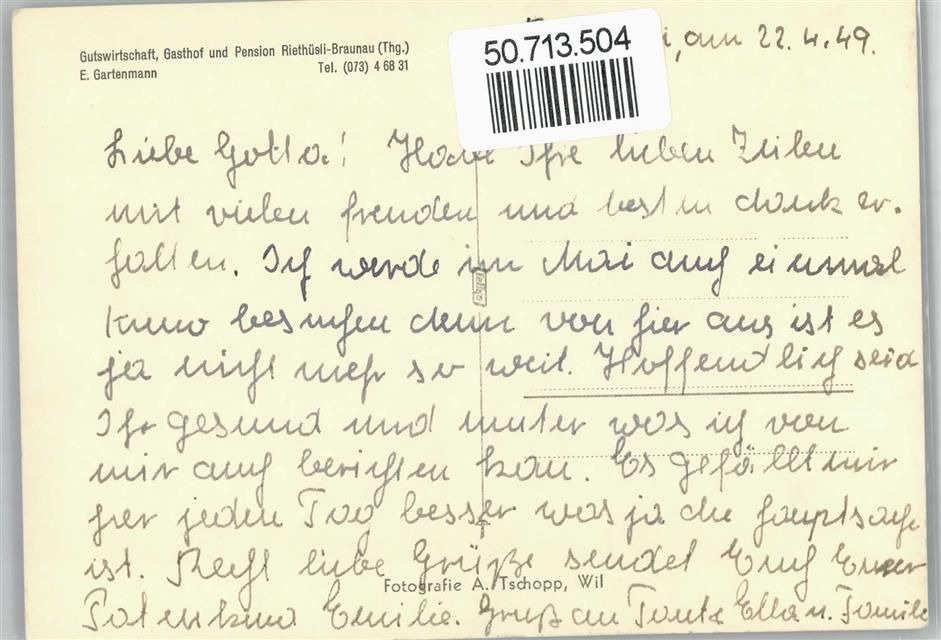 Gutswirtschaft, Gasthof und Pension Riethüsli-Braunau (Thg.)
E. Gartenmann Tel. (073) 4 68 31
50.713.504
am 22.4.49.
Liebe Gotta! Habe Ihre lieben Zeilen
mit vielen freuden und besten dank er-
halten. Ich werde im Mai auch einmal
besuchen denn von hier aus ist es
ja nicht mehr so weit. Hoffendlich seid
Ihr gesund und munter was ich von
mir auch berichten kan. Es gefällt mir
hier jeden Tag besser was ja die hauptsache
ist. Recht liebe Grüße sendet Euch Euer
Patenkind Emilie. Gruß an Tante Ella u. Familie
Fotografie A. Tschopp, Wil